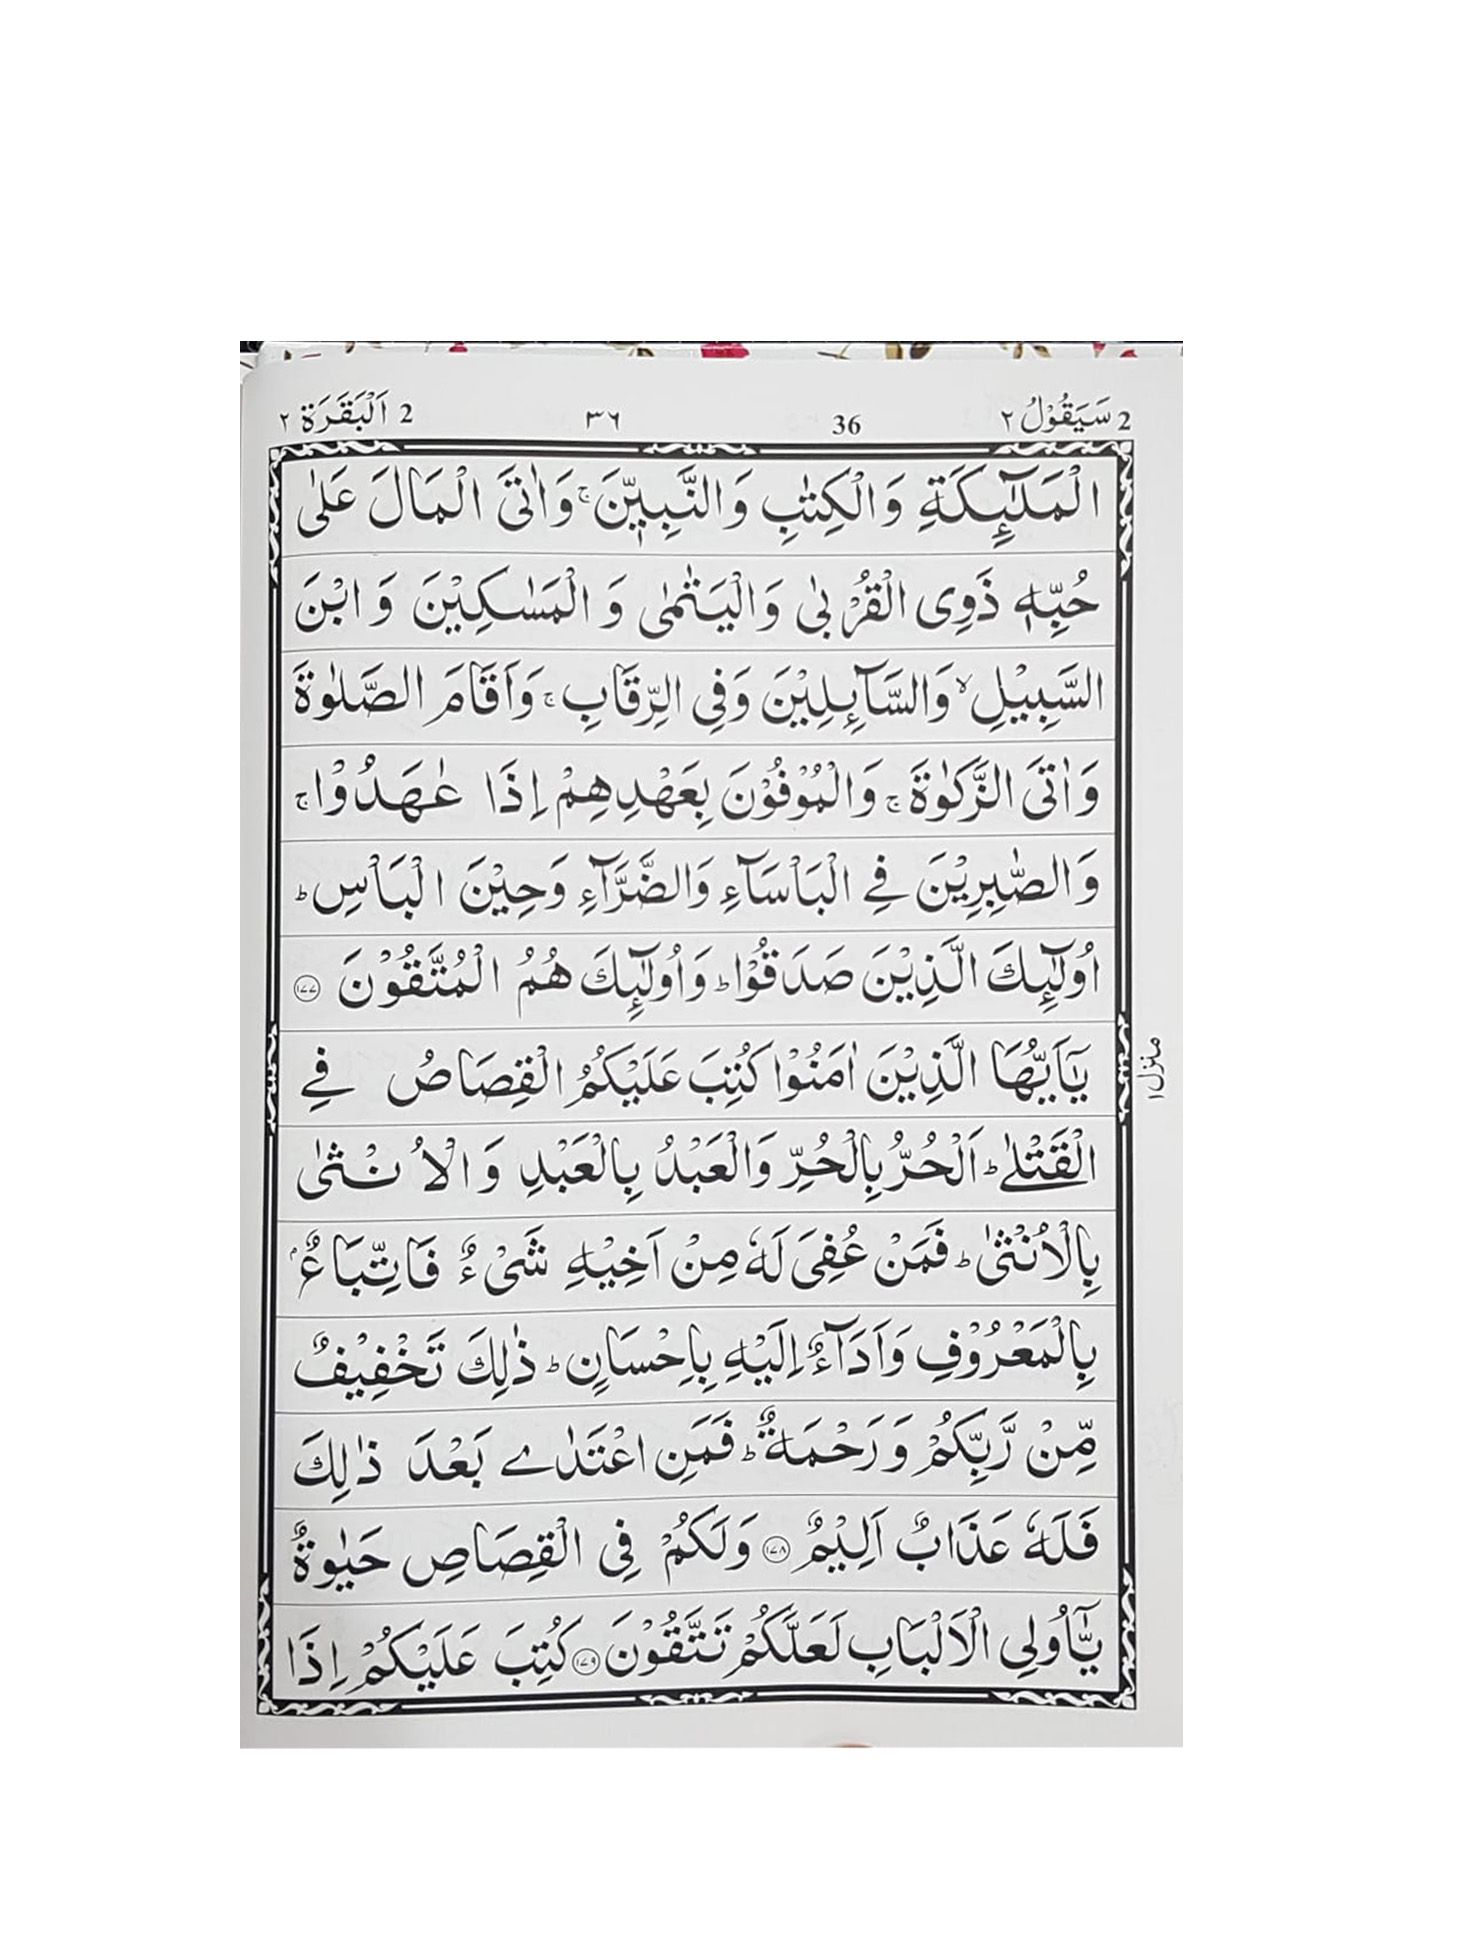 2 سَيَقُوْلُ ٢ 36 ٣٦ 2 اَلْبَقَرَة ٢
الْمَلٰٓئِكَةِ وَالْكِتٰبِ وَالنَّبِيّٖنَ ۚ وَاٰتَى الْمَالَ عَلٰى
حُبِّهٖ ذَوِى الْقُرْبٰى وَالْيَتٰمٰى وَ الْمَسٰكِيْنَ وَ ابْنَ
السَّبِيْلِ ۙ وَالسَّآئِلِيْنَ وَفِى الرِّقَابِ ۚ وَاَقَامَ الصَّلٰوةَ
وَاٰتَى الزَّكٰوةَ ۚ وَالْمُوْفُوْنَ بِعَهْدِهِمْ اِذَا عٰهَدُوْا ۚ
وَالصّٰبِرِيْنَ فِے الْبَاْسَآءِ وَالضَّرَّآءِ وَحِيْنَ الْبَاْسِ ؕ
اُولٰٓئِكَ الَّذِيْنَ صَدَقُوْا ؕ وَاُولٰٓئِكَ هُمُ الْمُتَّقُوْنَ ﴿١٧٧﴾
يٰٓاَيُّهَا الَّذِيْنَ اٰمَنُوْا كُتِبَ عَلَيْكُمُ الْقِصَاصُ فِے
الْقَتْلٰے ؕ اَلْحُرُّ بِالْحُرِّ وَالْعَبْدُ بِالْعَبْدِ وَ الْاُ نْثٰى
بِالْاُنْثٰى ؕ فَمَنْ عُفِىَ لَهٗ مِنْ اَخِيْهِ شَىْءٌ فَاتِّبَاعٌۢ
بِالْمَعْرُوْفِ وَاَدَآءٌ اِلَيْهِ بِاِحْسَانٍ ؕ ذٰلِكَ تَخْفِيْفٌ
مِّنْ رَّبِّكُمْ وَ رَحْمَةٌ ؕ فَمَنِ اعْتَدٰے بَعْدَ ذٰلِكَ
فَلَهٗ عَذَابٌ اَلِيْمٌ ﴿١٧٨﴾ وَلَكُمْ فِى الْقِصَاصِ حَيٰوةٌ
يّٰٓاُولِى الْاَلْبَابِ لَعَلَّكُمْ تَتَّقُوْنَ ﴿١٧٩﴾ كُتِبَ عَلَيْكُمْ اِذَا
منزل ١